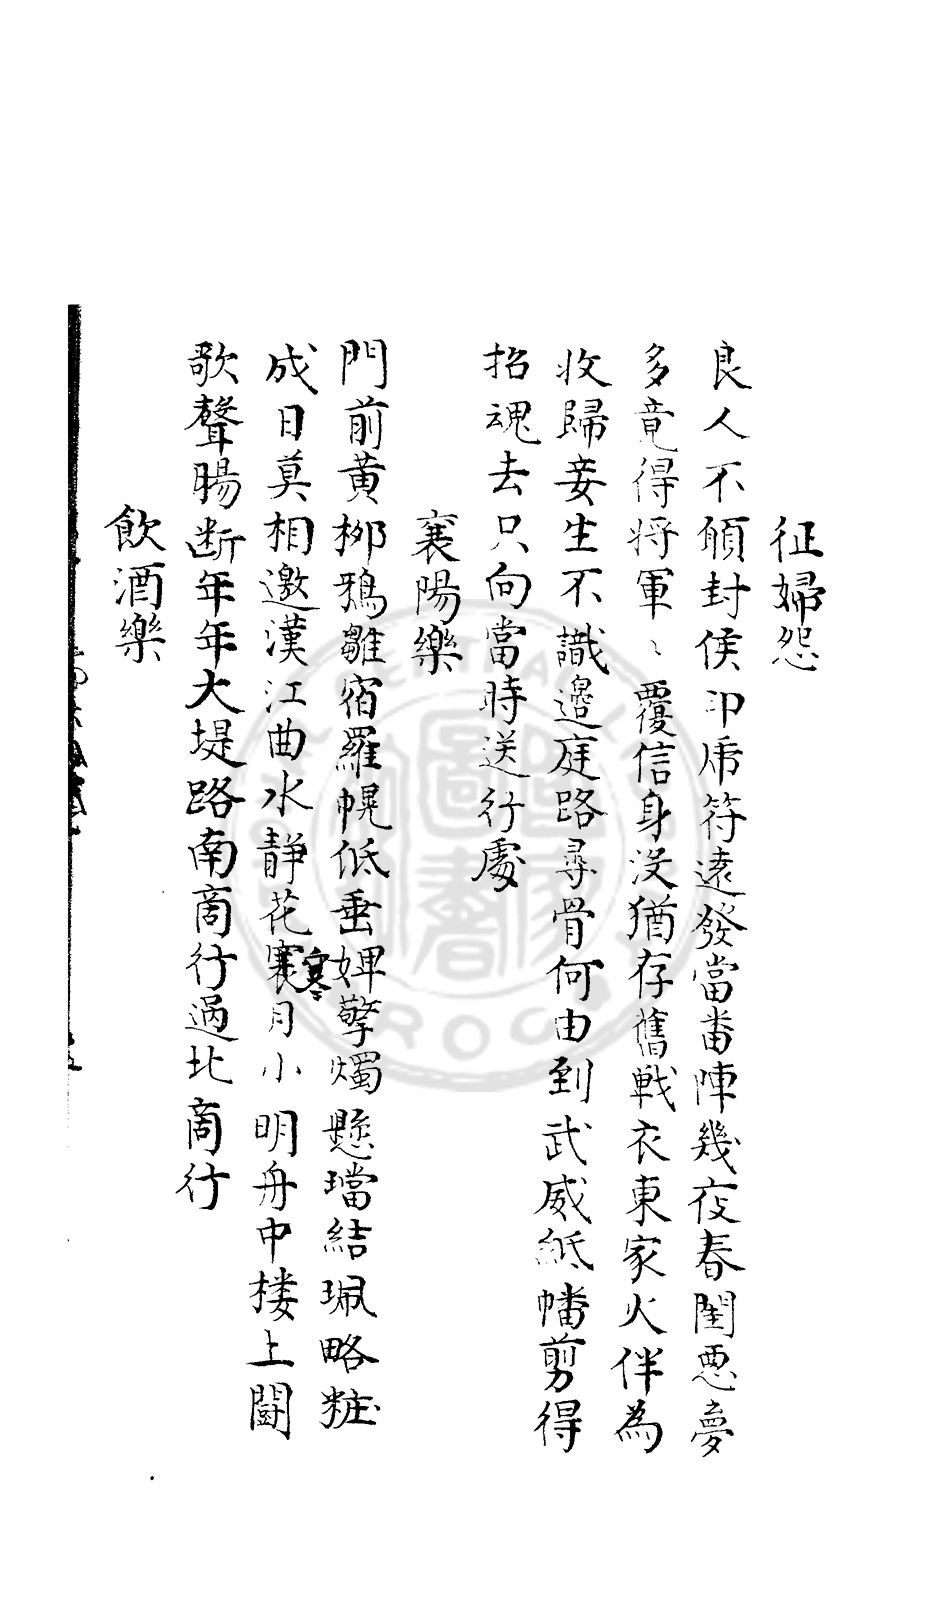 征婦怨
良人不願封侯印虎符遠發當番陣幾夜春閨惡夢
多竟得將軍〻覆信身没猶存舊戰衣東家火伴為
收歸妾生不識邊庭路尋骨何由到武威紙幡剪得
招魂去只向當時送行處
襄陽樂
門前黄柳鴉雛宿羅幌低垂婢擎燭懸璫結珮略粧
成日莫相邀漢江曲水静花寒月小明舟中楼上鬪
寒
歌聲腸断年年大堤路南商行過北商行
飲酒樂